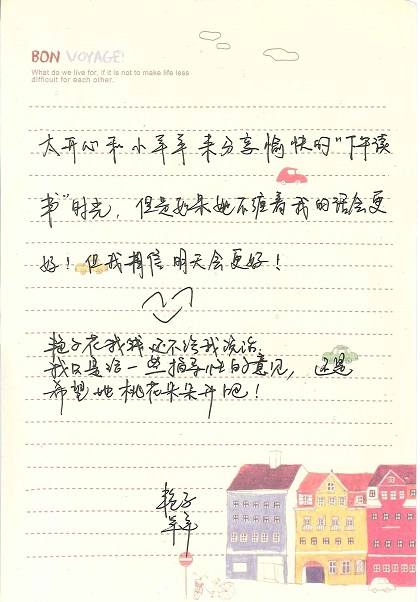 BON VOYAGE!
What do we live for, if it is not to make life less
difficult for each other.
太开心和小羊羊来分享愉快的"下午读
书"时光，但是如果她不缠着我的话会更
好！但我相信明天会更好！
我 还不给我说话.
我只是给一些指导性的意见，还是
希望她桃花朵朵开吧！
羊羊